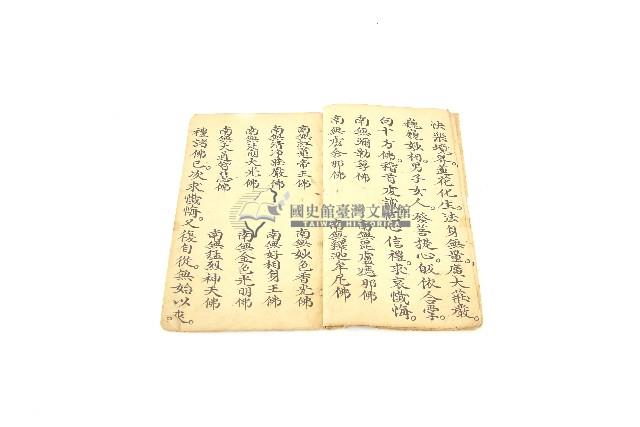 快樂獨尊。蓮花化生。法身無量。廣大莊嚴。
巍巍妙相。男子女人。發菩提心。皈依合掌。
向十方佛。稽首皮 信禮。求哀懺悔。
南無彌勒尊佛 南無毘盧遮那佛
南無盧舍那佛 南無釋迦牟尼佛
南無紅蓮帝王佛 南無妙色香光佛
南無清淨莊嚴佛 南無好相身王佛
南無法 天光佛 南無金色光明佛
南無大 佛 南無猛烈神天佛
種諸佛。已次求懺悔。又復自從。無始以來。
國史館臺灣文獻館
TAIWAN HISTORICA